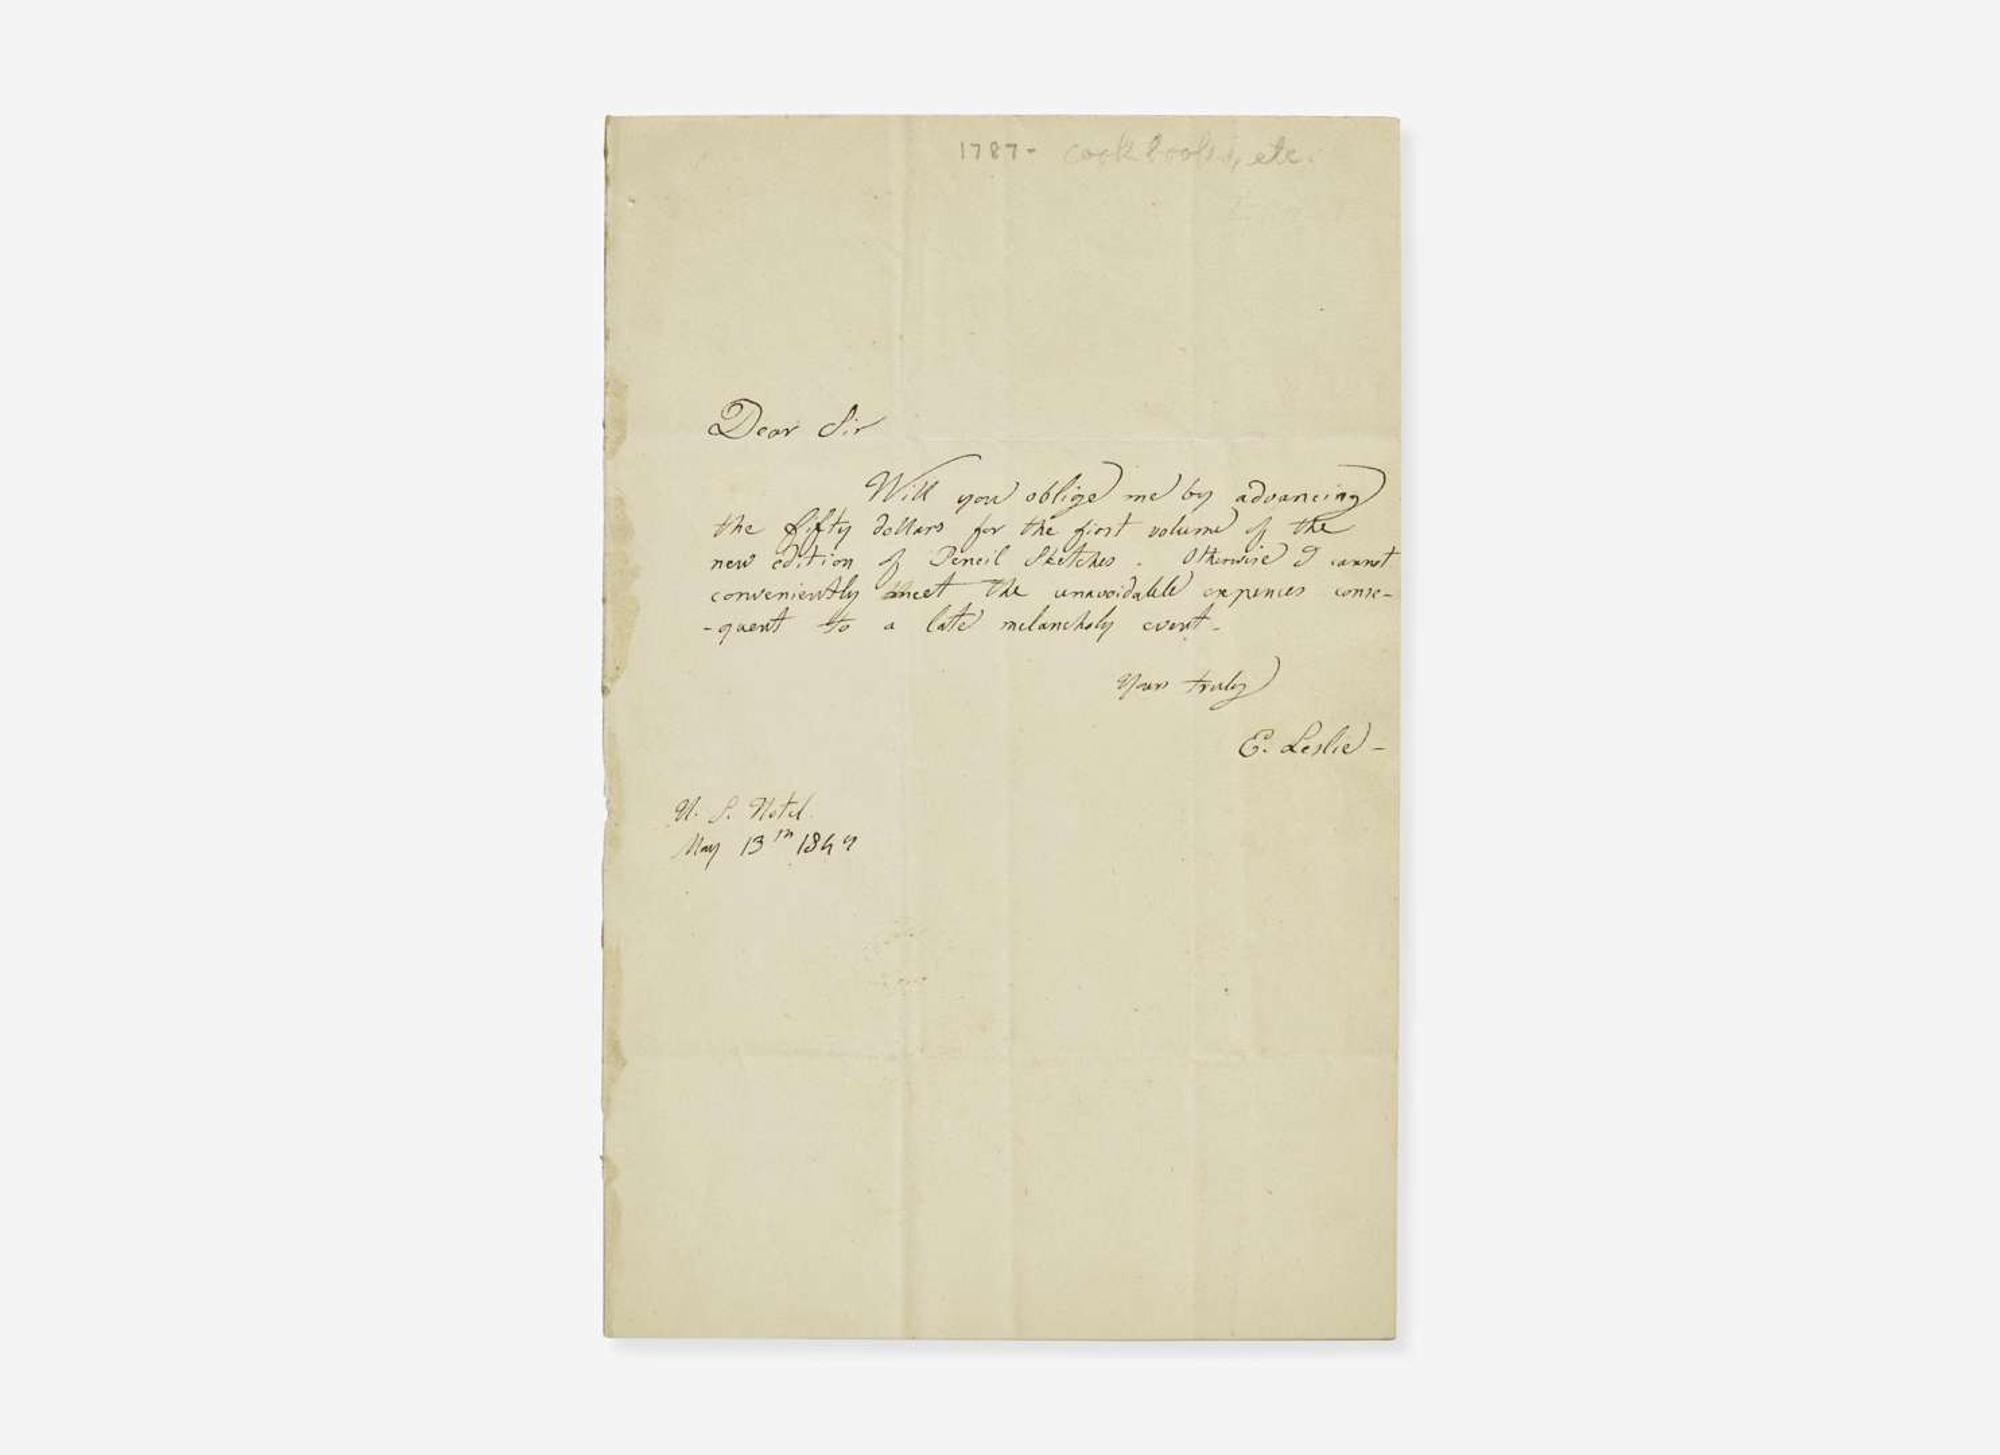 1787- cook books, etc.
Dear Sir
Will you oblige me by advancing
the fifty dollars for the first volume of the
new edition of Pencil Sketches. Otherwise I cannot
conveniently meet the unavoidable expences conse-
-quent to a late melancholy event-
Yours truly
E. Leslie-
U. S. Hotel.
May 13th